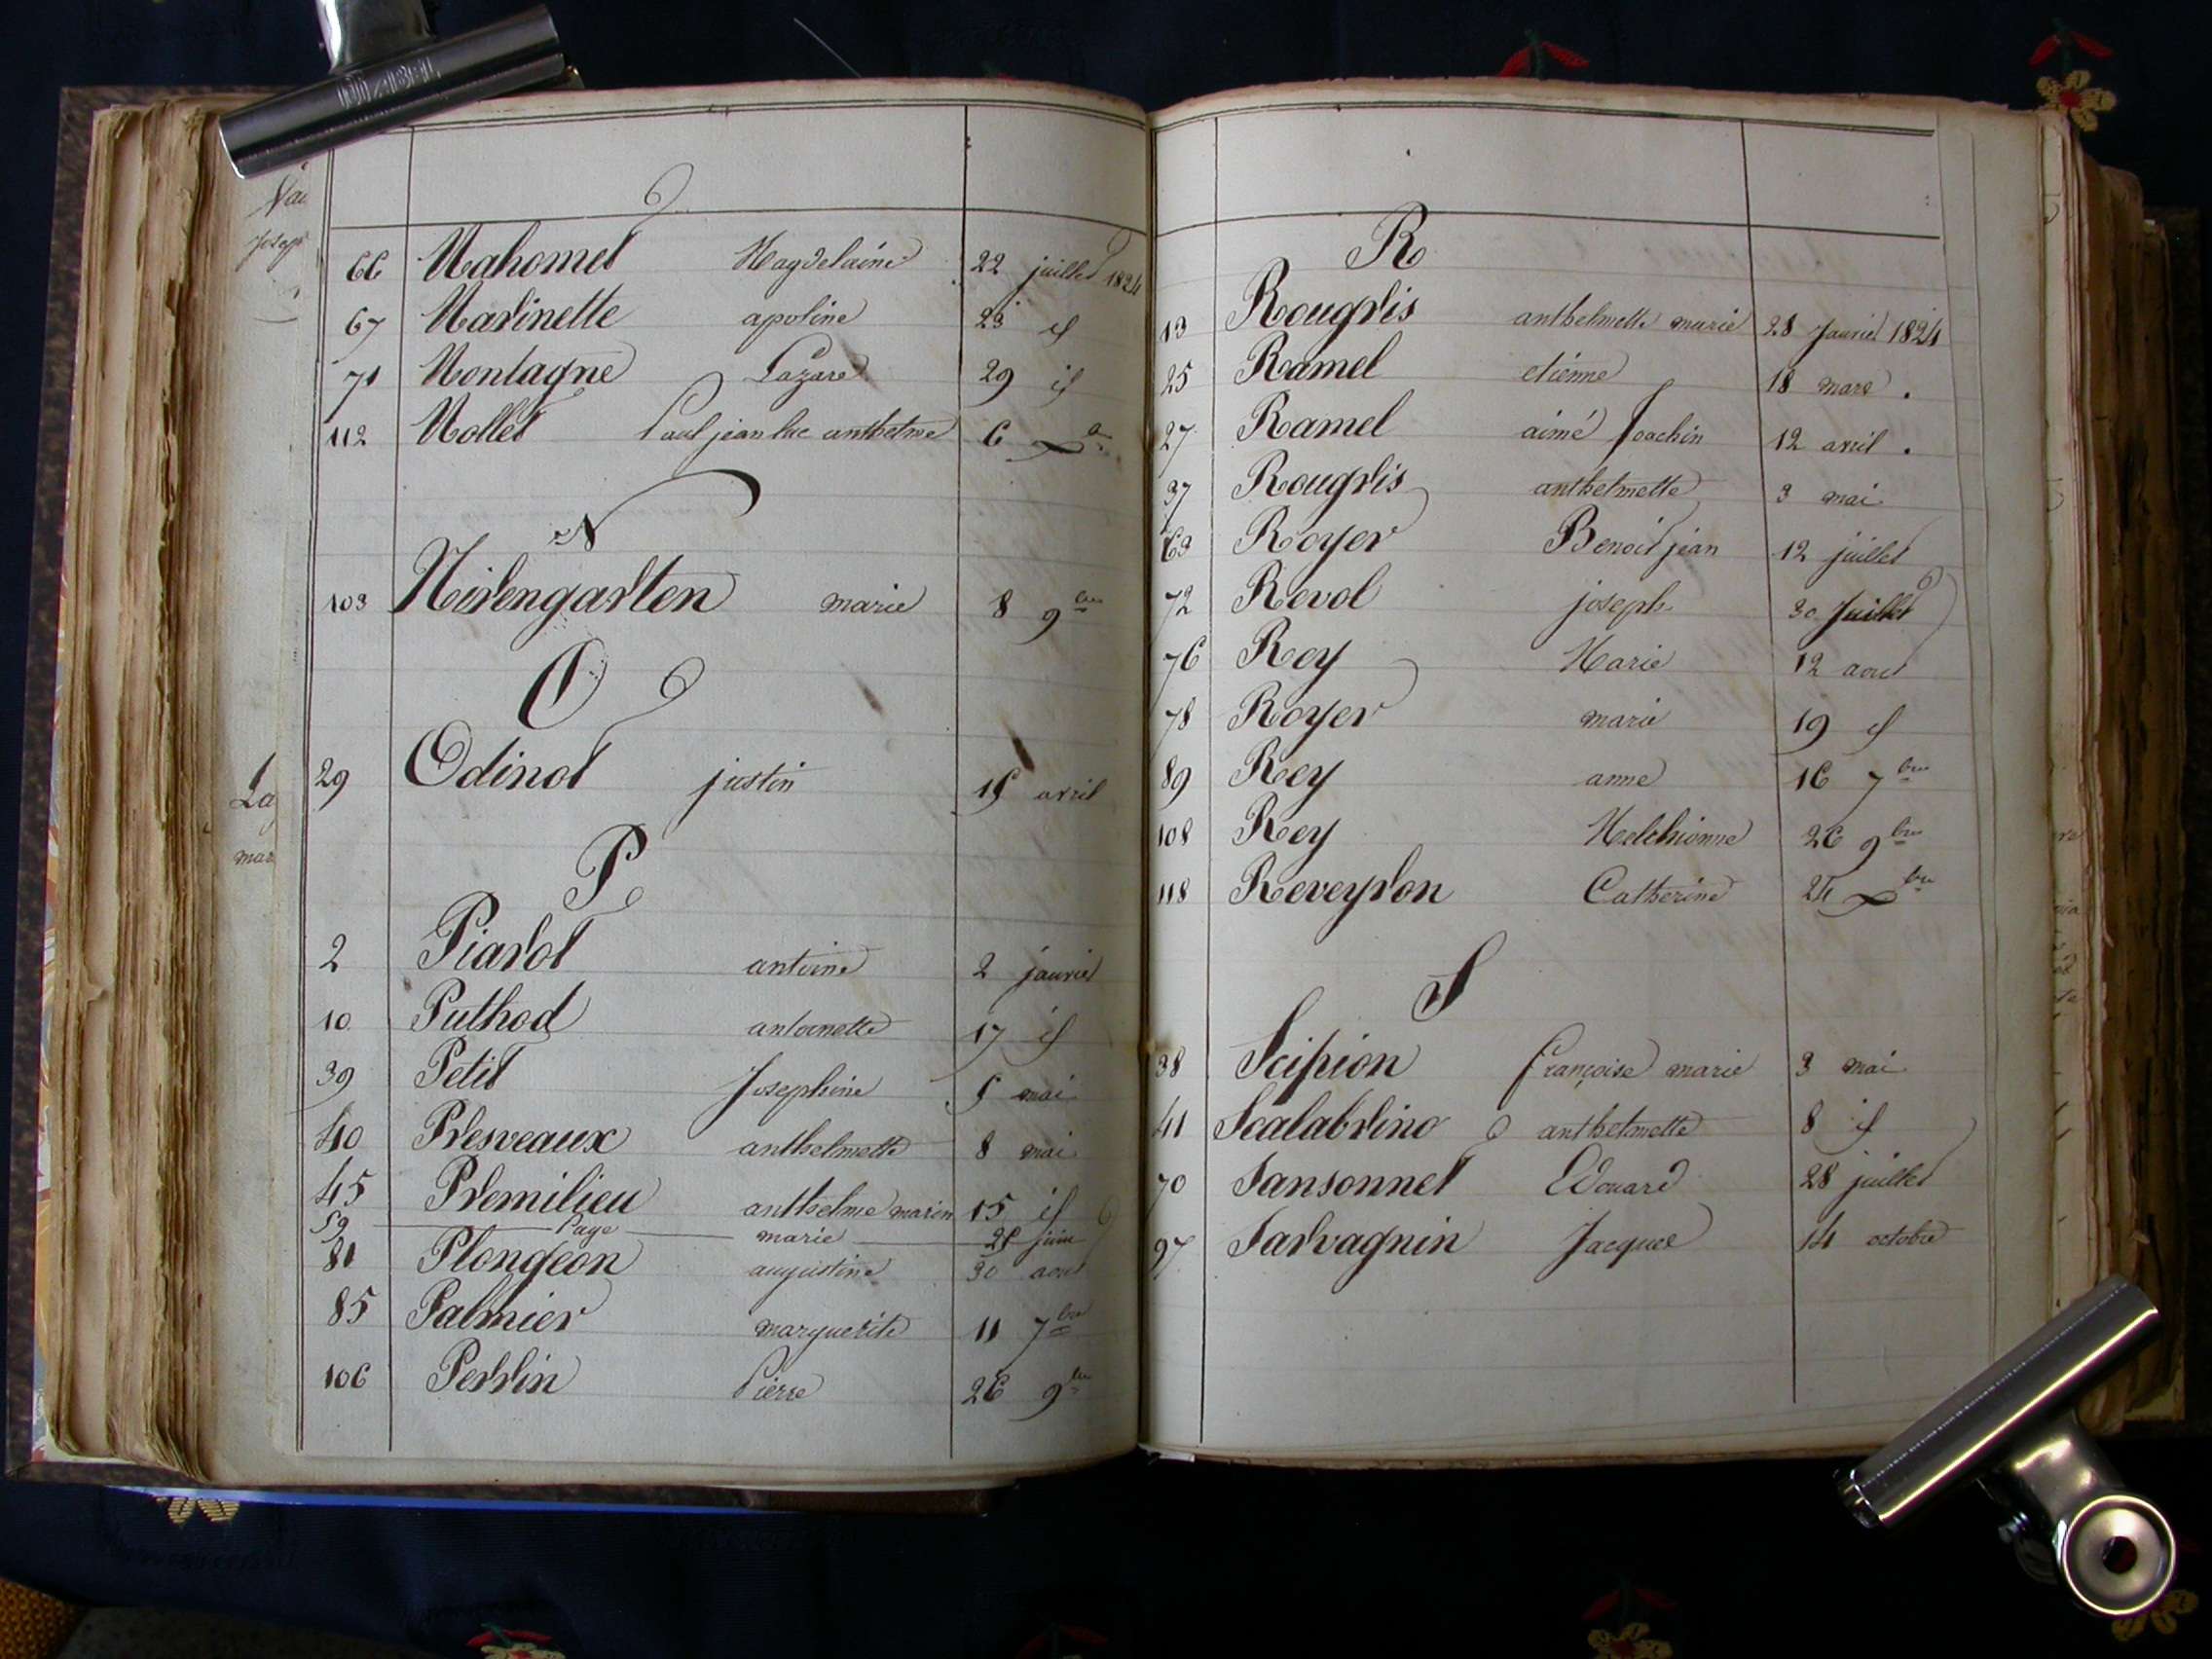 66 Mahomet Magdelaine 22 juillet 1824
67 Marinette apoline 23 id
71 Montagne Lazare 29 id
112 Mollet Paul jean luc anthelme 6 Xbre
N
103 Nirengarten marie 8 9bre
O
29 Odinot justin 15 avril
P
2 Piarot antoine 2 janvier
10 Puthod antoinette 17 id
39 Petit Josephine 5 mai
40 Presveaux anthelmette 8 mai
45 Premilieu anthelme marin 15 id
59 Page marie juin
81 Plongeon augustine 30 aout
85 Palmier marguerite 11 7bre
106 Perrin Pierre 26 9bre
R
13 Rougris anthelmette marie 28 Janvier 1824
25 Ramel etienne 18 mars
27 Ramel aimé Joachin 12 avril
37 Rougris anthelmette 3 mai
63 Royer Benoit jean 12 juillet
72 Revol joseph 30 Juillet
76 Rey Marie 12 aout
78 Royer marie 19 id
89 Rey anne 16 7bre
108 Rey Melchionne 26 9bre
118 Reveyron Catherine 24 Xbre
S
38 Scipion françoise marie 3 mai
41 Scalabrino anthelmette 8 id
70 Sansonnet Edouard 28 juillet
97 Sarvagnin Jacques 14 octobre